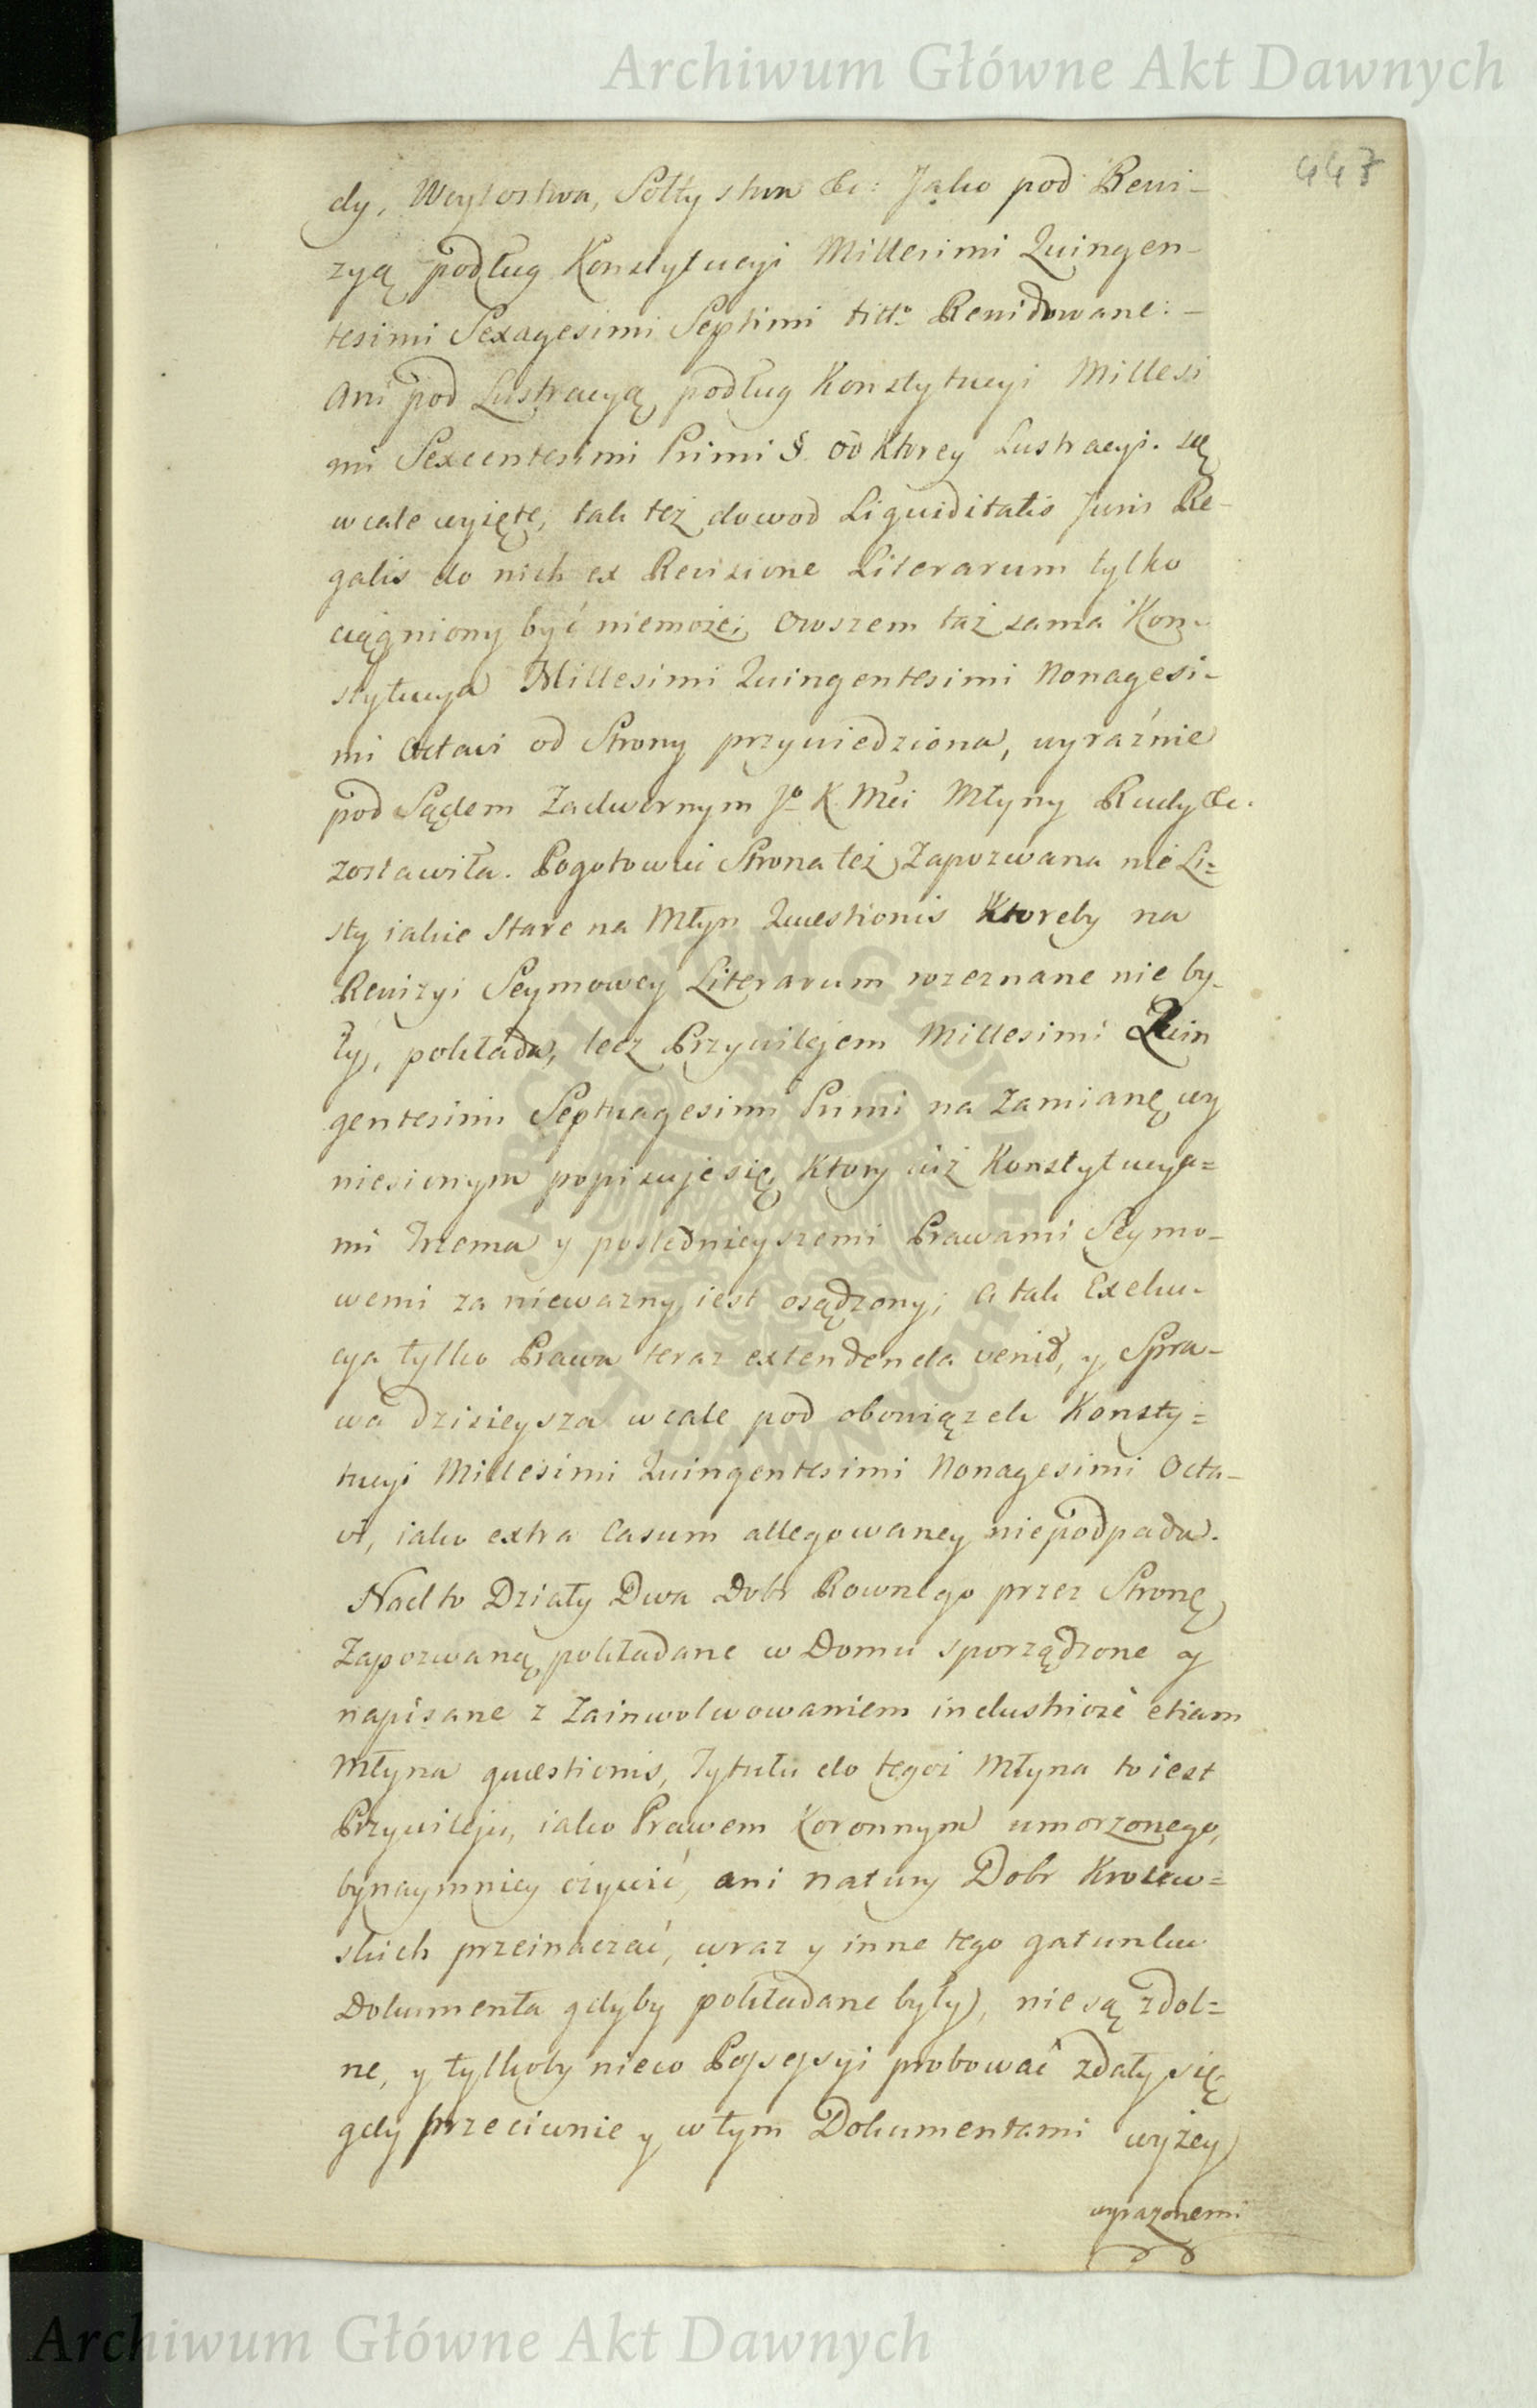 Archiwum Główne Akt Dawnych
447
dy, Woytostwa, Sołtystwa &c: Jako pod Rewi-
zyą podług Konstytucyi Millesimi Quingen-
tesimi Sexagesimi Septimi titto Rewidowane:-
Ani pod Lustracyą podług Konstytucyi Millesi
mi Sexcentesimi Primi §. Od Ktorey Lustracyi. są
wcale wyięte, tak też dowod Liquiditatis Juris Re-
galis do nich ex Revisione Literarum tylko
ciągniony być niemoże; Owszem taż sama Kon-
stytucya Millesimi Quingentesimi Nonagesi-
mi Octavi od Strony przywiedziona, wyraźnie
pod Sądem Zadwornym Jo K Mci Młyny Rudy &c.
zostawiła. Pogotowiu Strona też Zapozwana nie Li=
sty iakie Stare na Młyn Quæstionis Ktoreby na
Rewizyi Seymowey Literarum rozeznane nie by-
ły, pokłada, lecz Przywilejem Millesimi Quin
gentesimi Septuagesimi Primi na Zamianę wy
niesionym popisuje się, Ktory iuż Konstytucya=
mi Trzema y poslednieyszemi Prawami Seymo-
wemi za niewazny iest osądzony; A tak Exeku-
cya tylko Prawa teraz extendenda venit, y Spra-
wa dzisieysza wcale pod obowiązek Konsty=
tucyi Millesimi Quingentesimi Nonagesimi Octa-
vi, iako extra Casum allegowaney niepodpada.
Nadto Działy Dwa Dobr Rownego przez Stronę
Zapozwaną pokładane w Domu sporządzone y
napisane z Zainwolwowaniem industriose etiam
Młyna quæstionis, Tytułu do tegoż Młyna to iest
Przywileju, iako Prawem Koronnym umorzonego,
bynaymniey ożywić, ani natury Dobr Krolew=
skich przeinaczać, wraz y inne tego gatunku
Dokumenta gdyby pokładane były, nie są zdol=
ne, y tylkoby nieco Possessyi probować zdały się
gdy przeciwnie y w tym Dokumentami wyżey
wyrazonemi
ARCHIWUM GŁÓWNE AKT DAWNYCH
Archiwum Główne Akt Dawnych